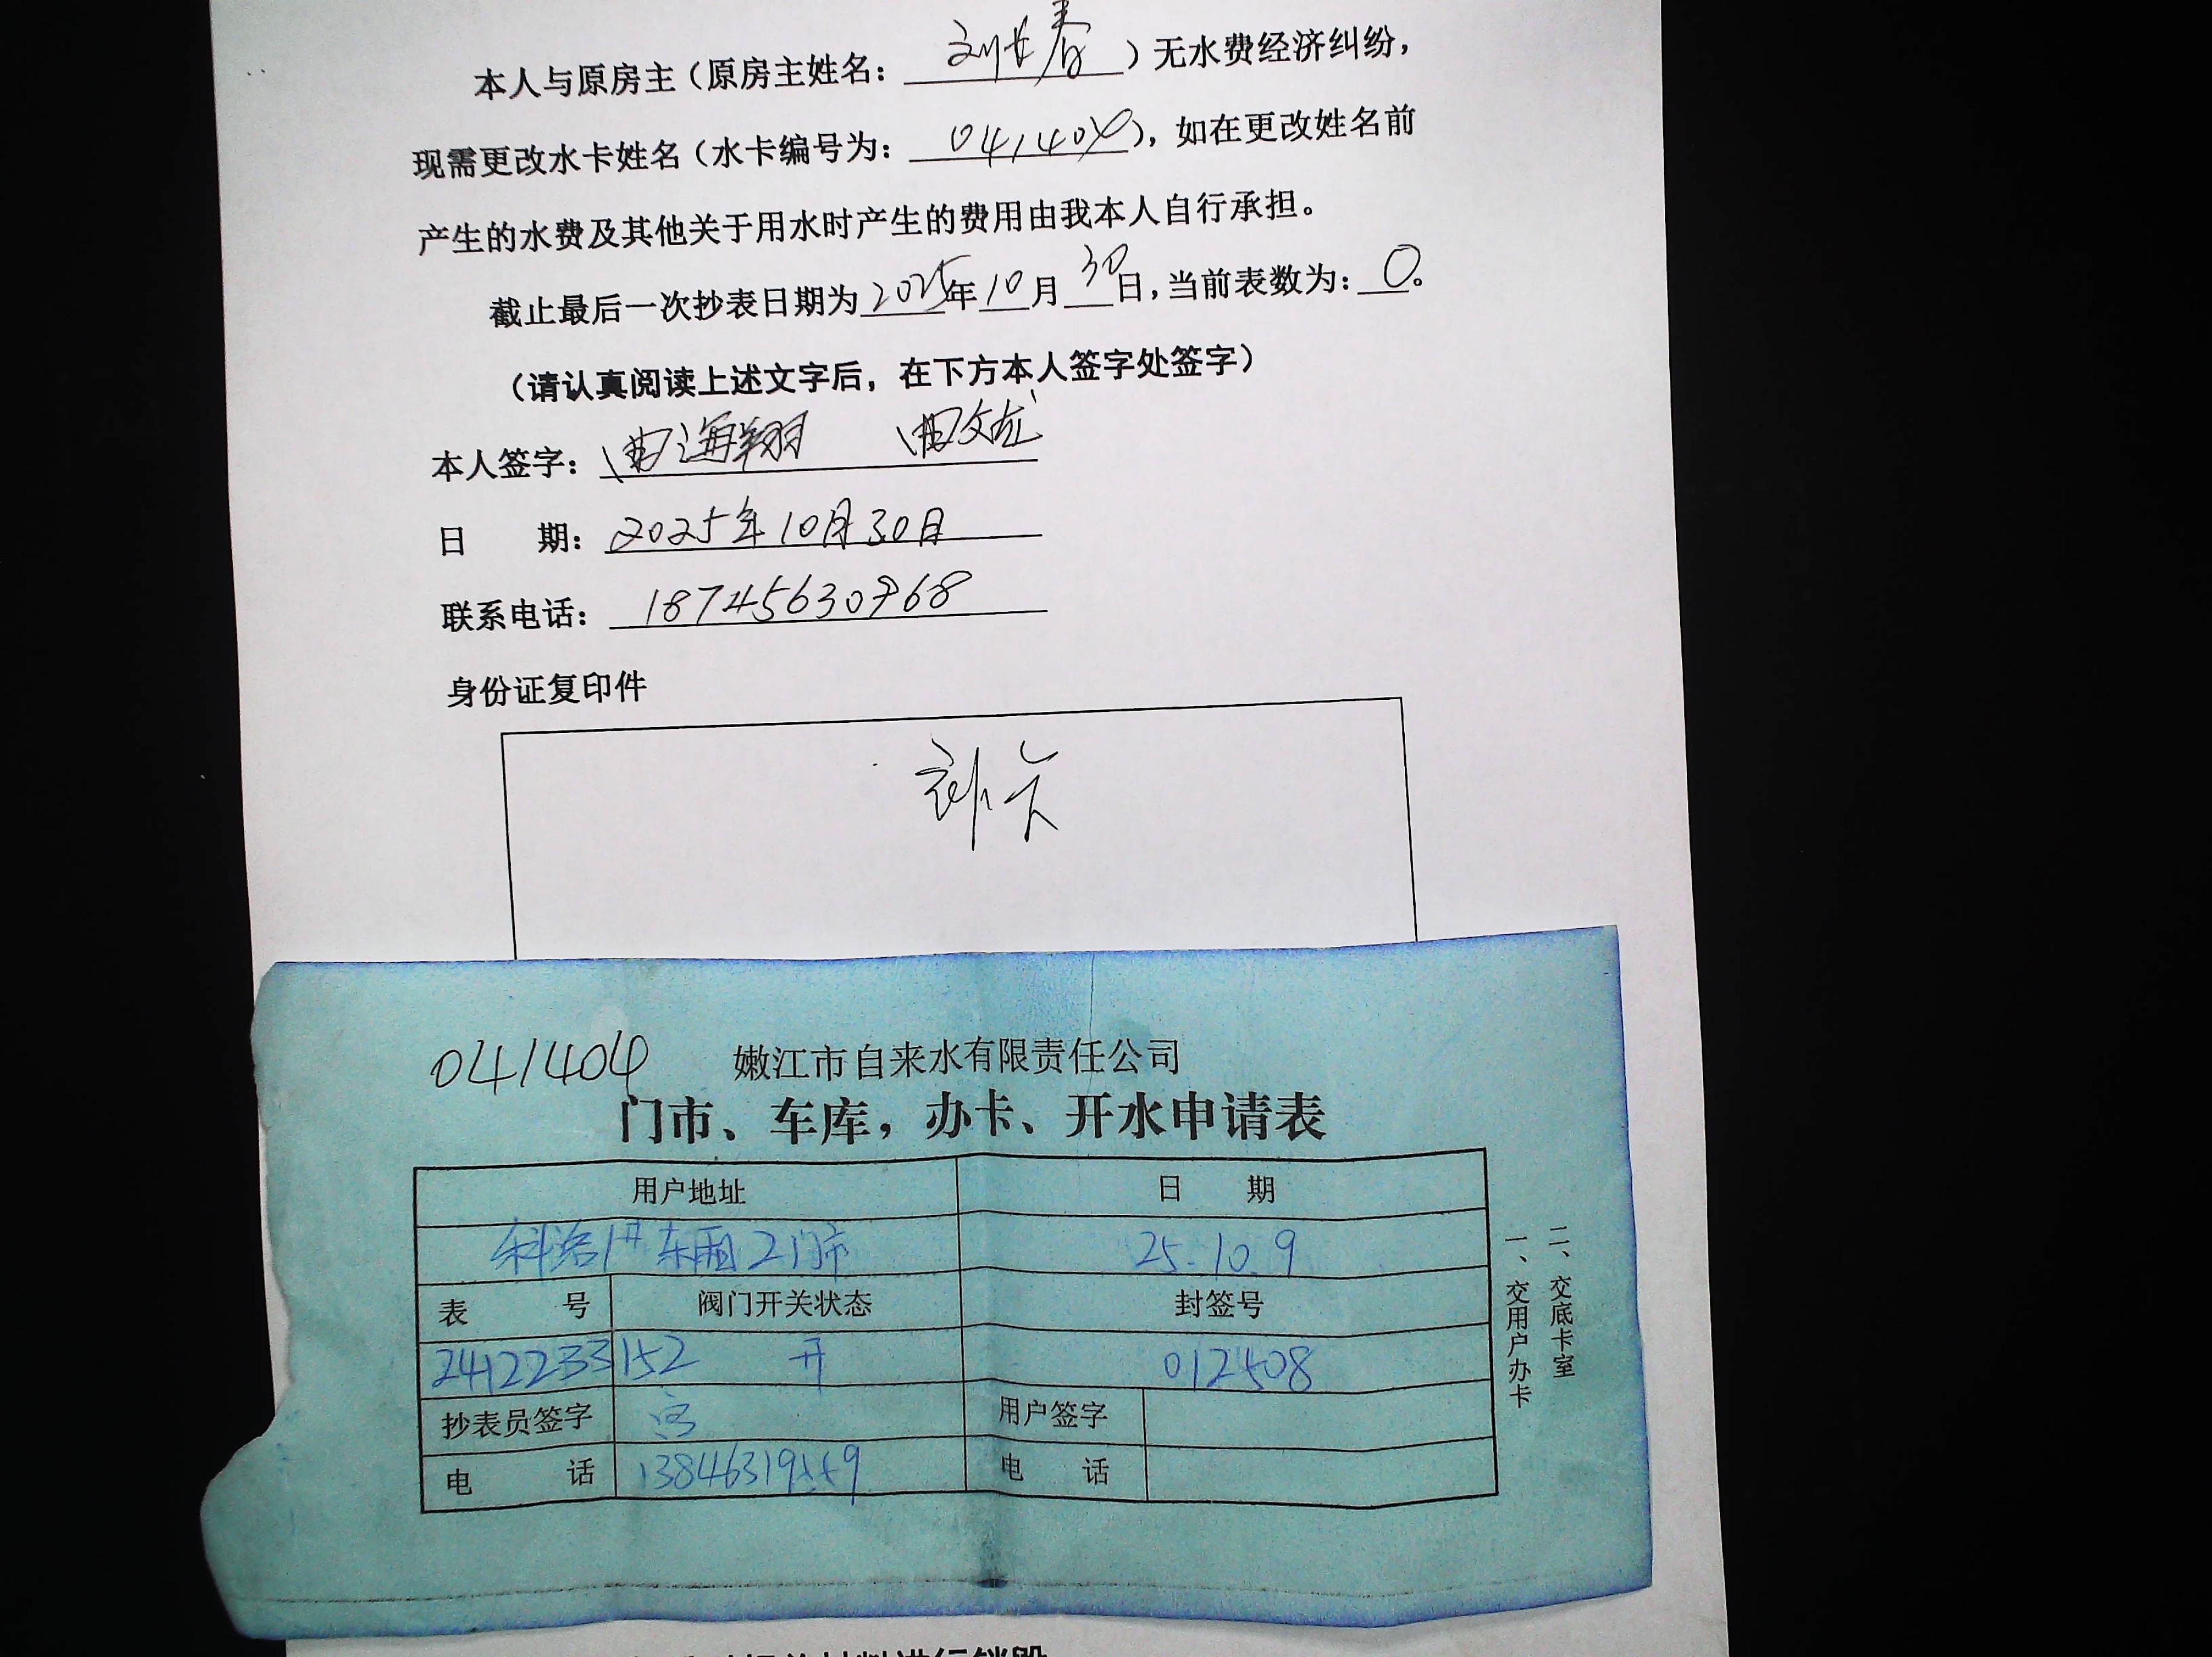 本人与原房主（原房主姓名：刘长春）无水费经济纠纷，
现需更改水卡姓名（水卡编号为：041404），如在更改姓名前
产生的水费及其他关于用水时产生的费用由我本人自行承担。
截止最后一次抄表日期为2025年10月30日，当前表数为：0。
（请认真阅读上述文字后，在下方本人签字处签字）
本人签字：曲海翔 曲文龙
日 期：2025年10月30日
联系电话：18745630968
身份证复印件
补卡
041404 嫩江市自来水有限责任公司
门市、车库，办卡、开水申请表
用户地址 日 期
科洛1# 东厢2门市 25.10.9
表 号 阀门开关状态 封签号
2412233152 开 012508
抄表员签字 用户签字
电 话 电 话
一、交用户办卡
二、交底卡室